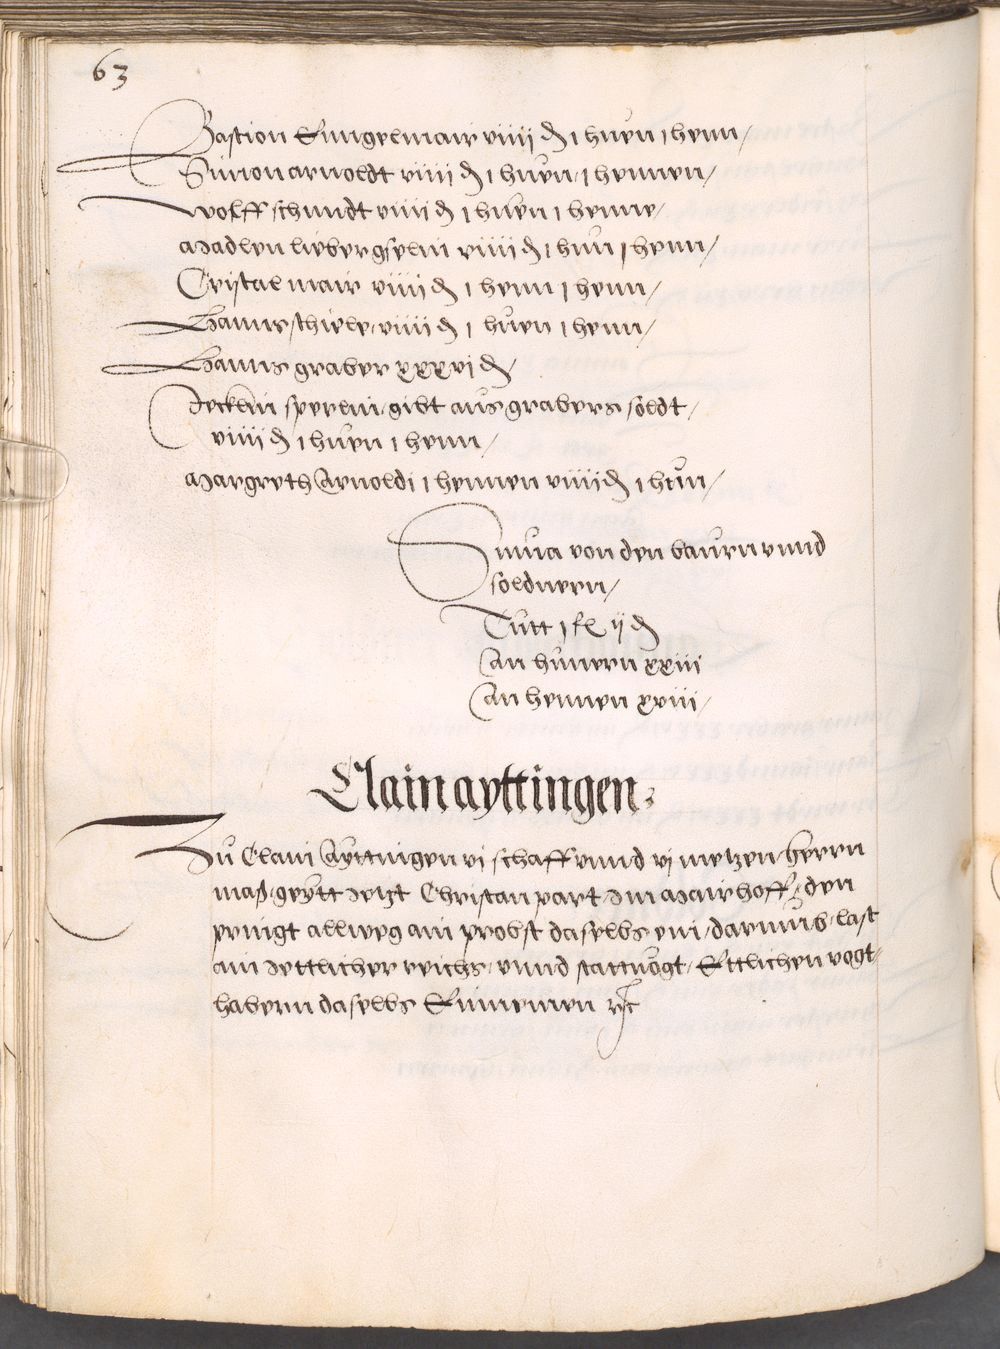 63
Bastion Kungelmair viiij ₰ 1 huen 1 henn /
Simon arnoldt viiij ₰ 1 huen / 1 hennen /
Wolff schmidt viiij ₰ 1 huen 1 henne /
Madlen liebergselin viiij ₰ 1 hun 1 henn /
Cristal mair viiij ₰ 1 henn 1 henn /
Hanns schiele viiij ₰ 1 huen 1 henn /
Hanns graber xxxvj ₰ /
Jecklin sperlin / gibt aus grabers söldt /
viiij ₰ 1 huen 1 henn /
Margreth Arnoldi 1 hennen viiij ₰ 1 hun /
Suma von den baurn vnnd
söldnern /
Tutt j fl ij ₰
An hunern xxiii
An hennen xviii /
Clain ayttingen
Zu Clain Ayttingen vj schaff vnnd vj metzen / herrn
mass / geytt Jetzt Christan part Im Mairhoff / den
prингt allweg ain probst daselbs ein / darumb / last
ain Jettlicher reichs / vnnd stattuogt / Ettlichen vogt-
habern daselbs Einnemen rc